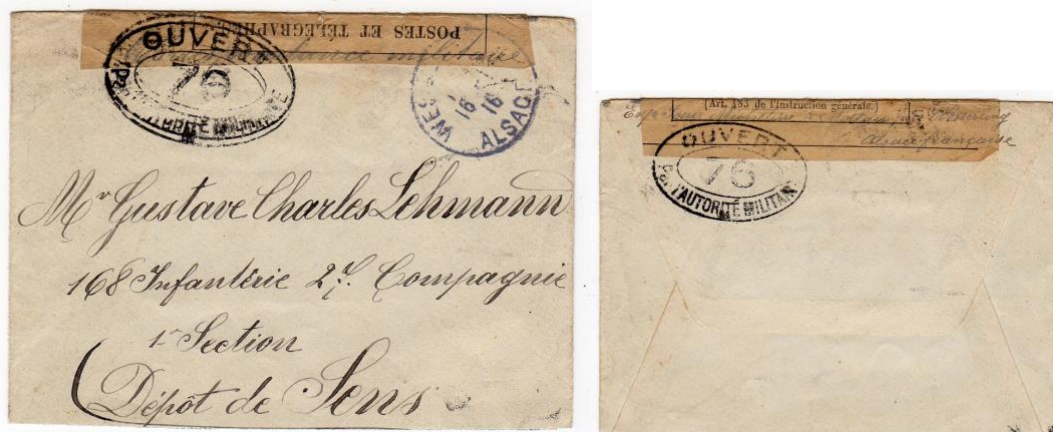 POSTES ET TÉLÉGRAPHES
militaire
OUVERT
76
PAR L'AUTORITÉ MILITAIRE
WES
16
16
ALSACE
Mr Gustave Charles Lehmann
168 Infantérie 27. Compagnie
1e Section
Dépôt de Sens
(Art. 183 de l'Instruction générale.)
Wesserling
Alsace française
OUVERT
76
PAR L'AUTORITÉ MILITAIRE